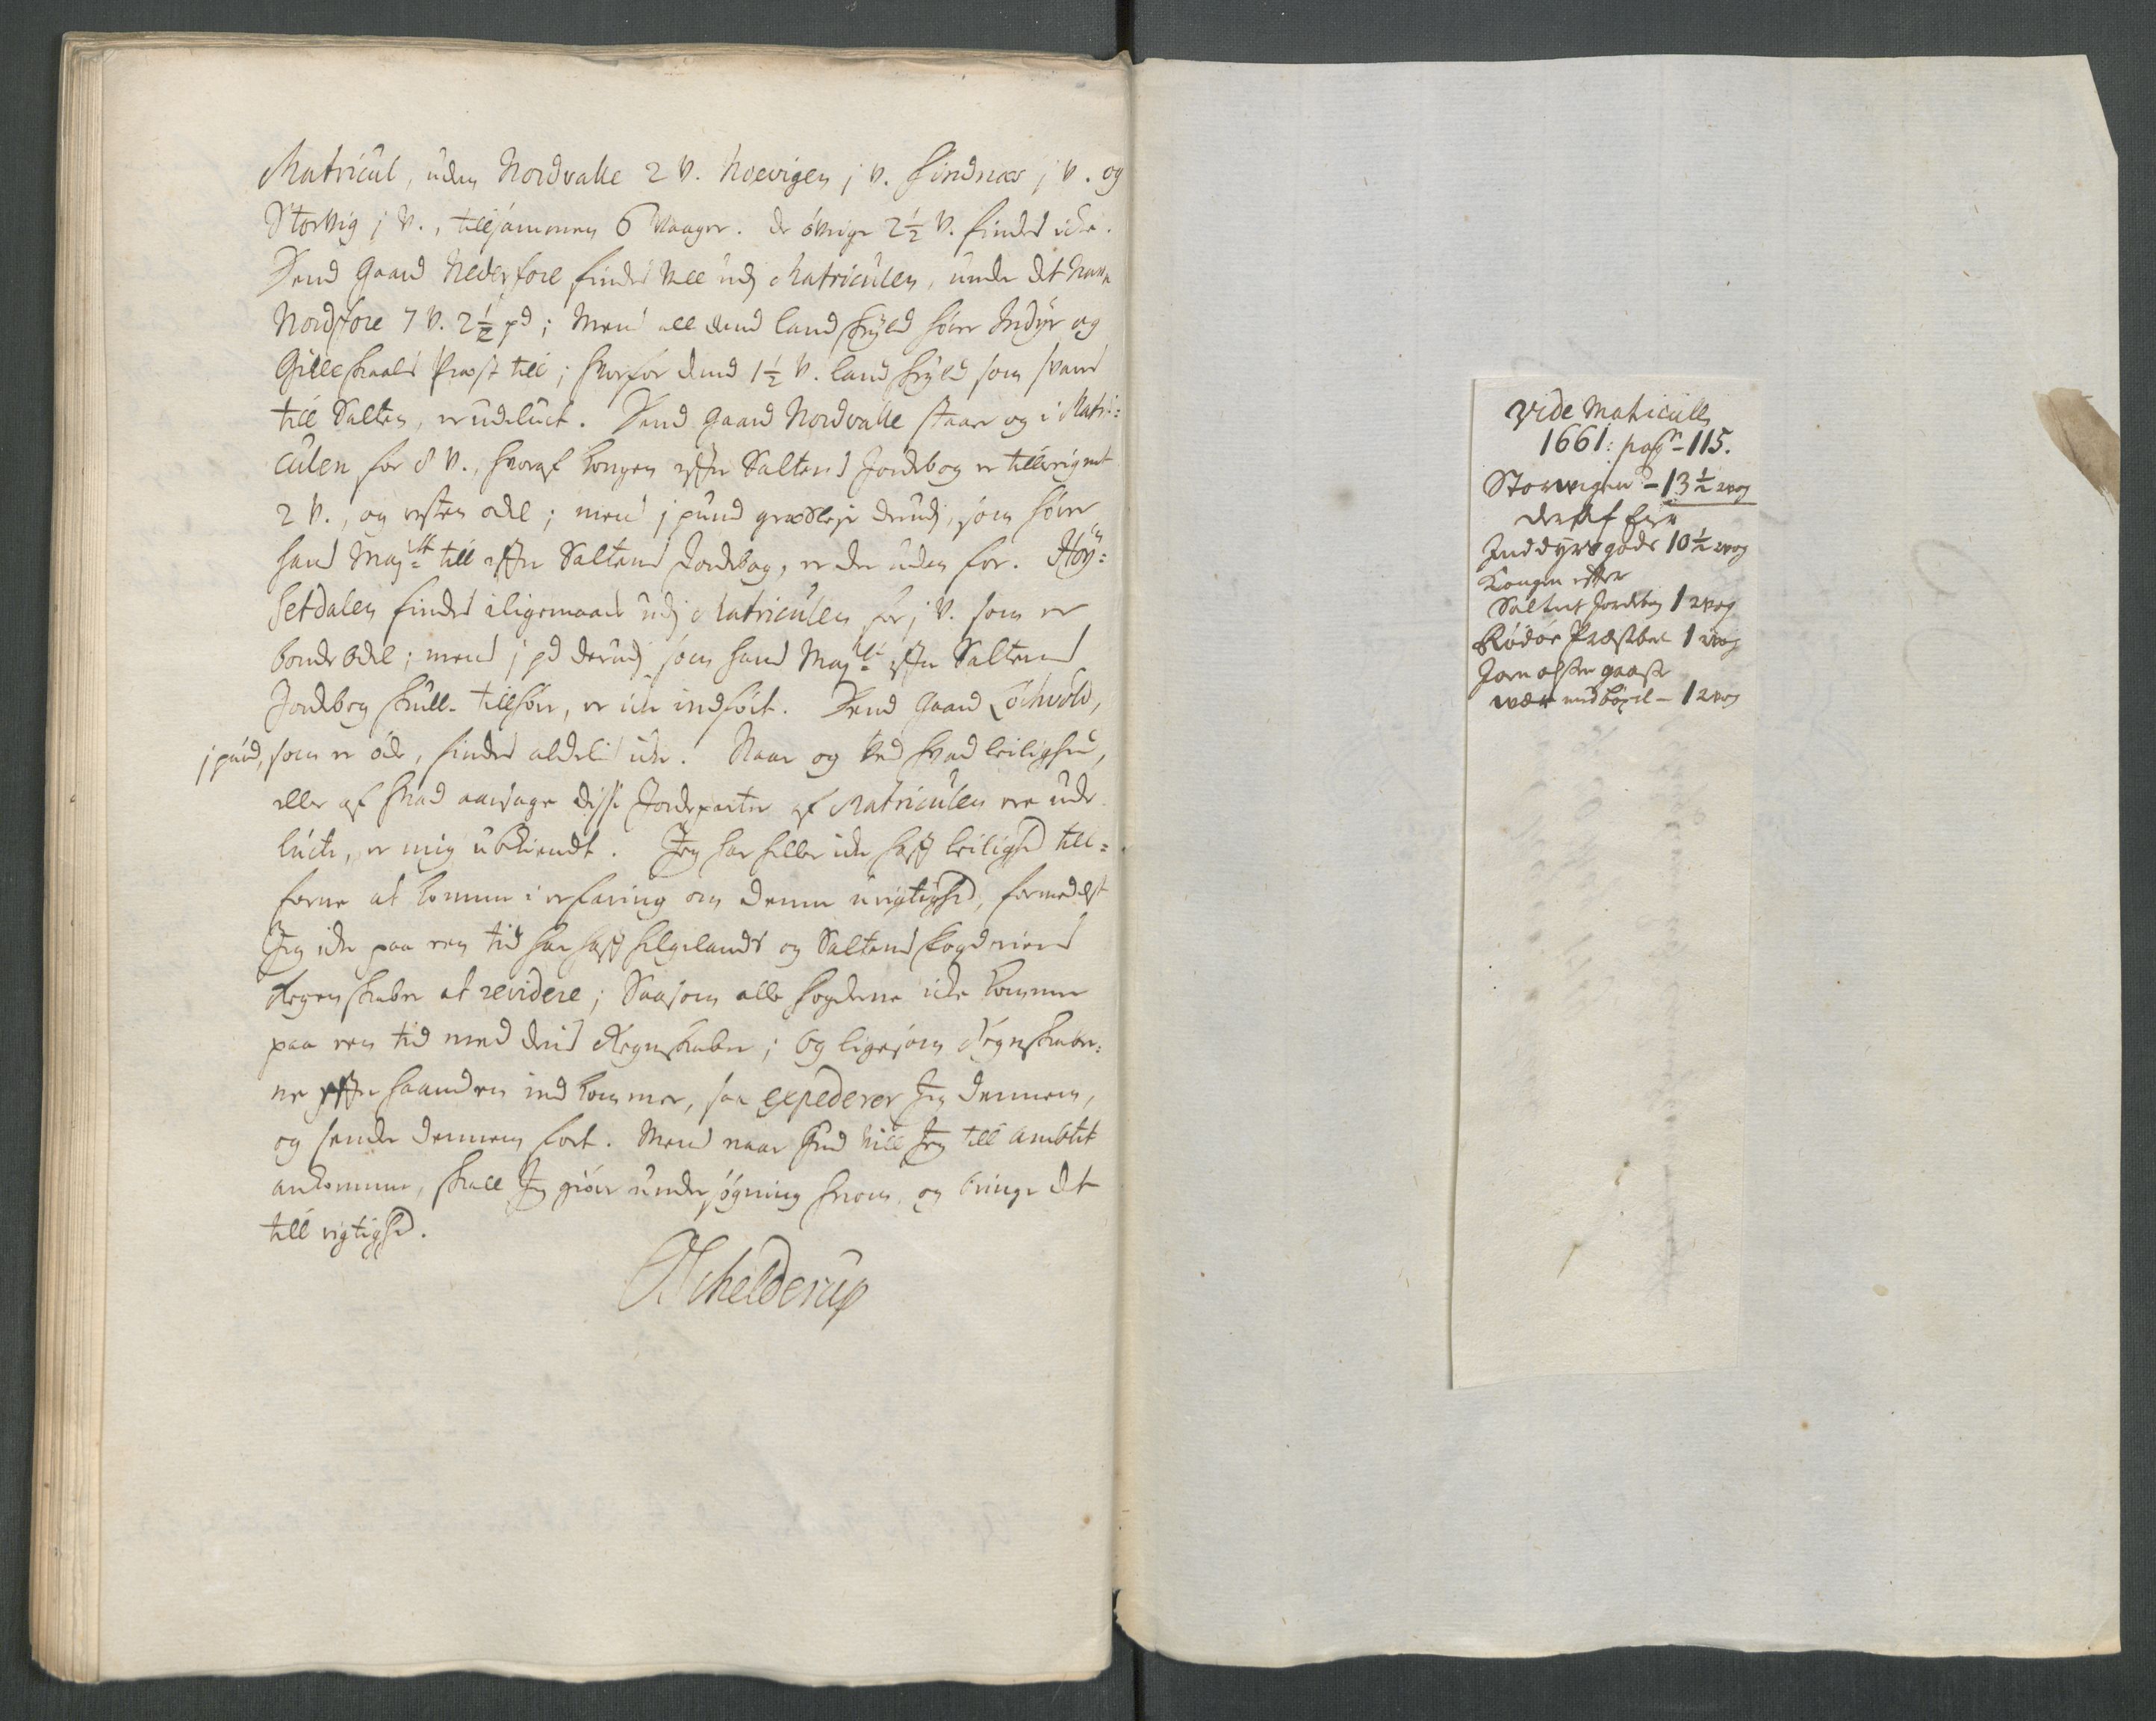 Matricul, uden Nordvalle 2 V. Noevigen j V. Findnæs j V. og
Storvig j V., tillsammen 6 Waager. De övrige 2½ V. findes icke.
Dend Gaard Nederfore findes vell udj Matriculen, under det Nafn
Nordfore 7 V. 2½ pd; Mend all dend landskyld hörer Indyr og
Gilleskaals Præst till; hvorfor dend 1½ V. landskyld som svares
till Salten, er udeluct. Dend gaard Nordvalle staar og i Matri=
culen for 8 V., hvoraf Kongen efter Saltens Jordebog er tillegnet
2 V., og resten odel; mend j pund græsleje derudj, som hörer
hans Maj:tt till efter Saltens Jordebog, er der uden for. Höy=
setdalen findes iligemaade udj Matriculen for j V. som er
bonde odel; mend j pd derudj som hans Maj:tt efter Saltens
Jordebog skulle tillhöre, er icke indfört. Dend gaard Löchvold,
j pund, som er öde, findes aldelis icke. Naar og ved hvad leilighed,
eller af hvad aarsage disse Jordeparter af Matriculen ere ude
lucte, er mig ubekiendt. Jeg har heller icke haft leilighed till=
forne at komme i erfaring om denne urigtighed, formedelst
Jeg icke paa een tid har haft Helgelands og Saltens fogderiers
Regenskaber at revidere; Saasom alle fogderne icke kommer
paa een tid med deris Regnskaber; og ligesom Regnskaber=
ne efter haanden indkommer, saa expederer Jeg dennem,
og sender dennem fort. Mend naar Gud vill Jeg till Ambtet
ankommer, skall Jeg giöre undersögning herom, og bringe det
till rigtighed.
Schelderup
Vide Matricull
1661: pag - 115.
Storvigen - 13½ wog
deraf Eyer
Inddyrs gods 10½ wog
Kongen efter
Saltens Jordebog 1 wog
Rödöe Præstebol 1 wog
Jorn
med böxel - 1 wog